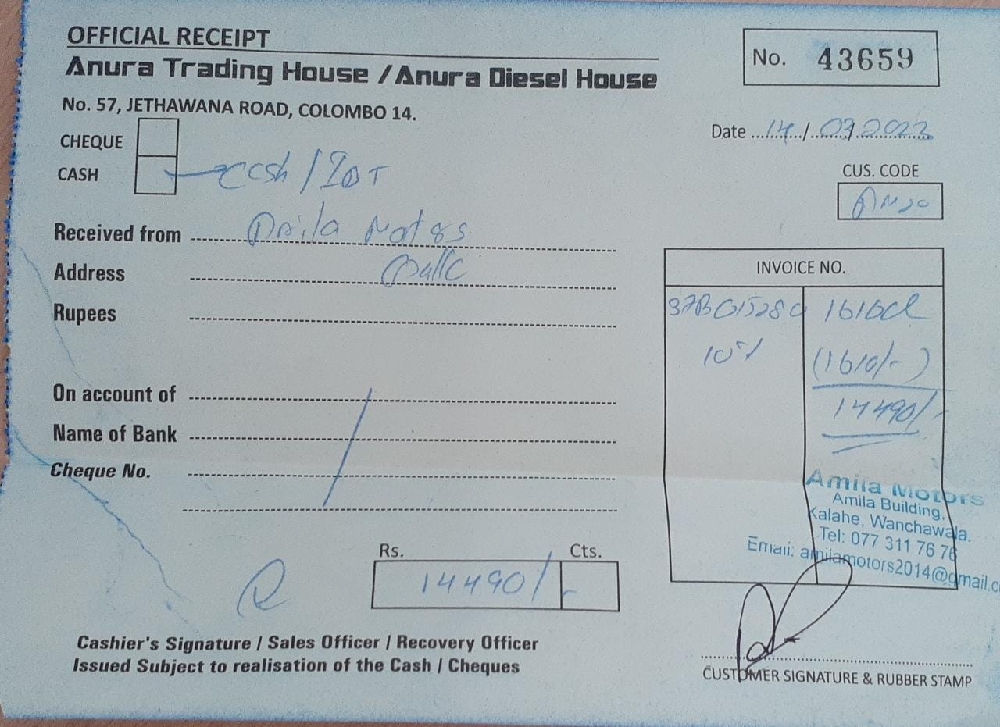 OFFICIAL RECEIPT
Anura Trading House / Anura Diesel House
No. 57, JETHAWANA ROAD, COLOMBO 14.
No. 43659
Date 14/03.2023
CHEQUE
CASH
CUS. CODE
Received from
Address
Rupees
INVOICE NO.
10%
(1610/-)
14490/-
On account of
Name of Bank
Cheque No.
Amila Motors
Amila Building,
Kalahe, Wanchawala.
Tel: 077 311 76 76
Email: amilamotors2014@gmail.c
Rs. Cts.
14490/-
Cashier's Signature / Sales Officer / Recovery Officer
Issued Subject to realisation of the Cash / Cheques
CUSTOMER SIGNATURE & RUBBER STAMP